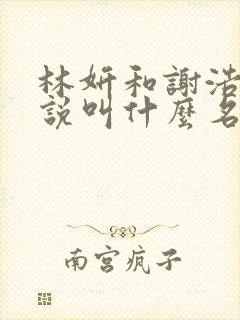 林妍和謝浩
說叫什麼名
南宮疯子